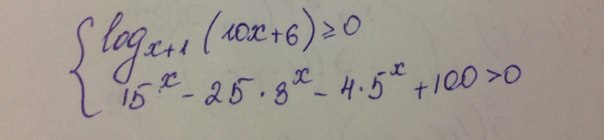 { log_{x+1} (10x+6) ≥ 0
15^x - 25 · 3^x - 4 · 5^x + 100 > 0